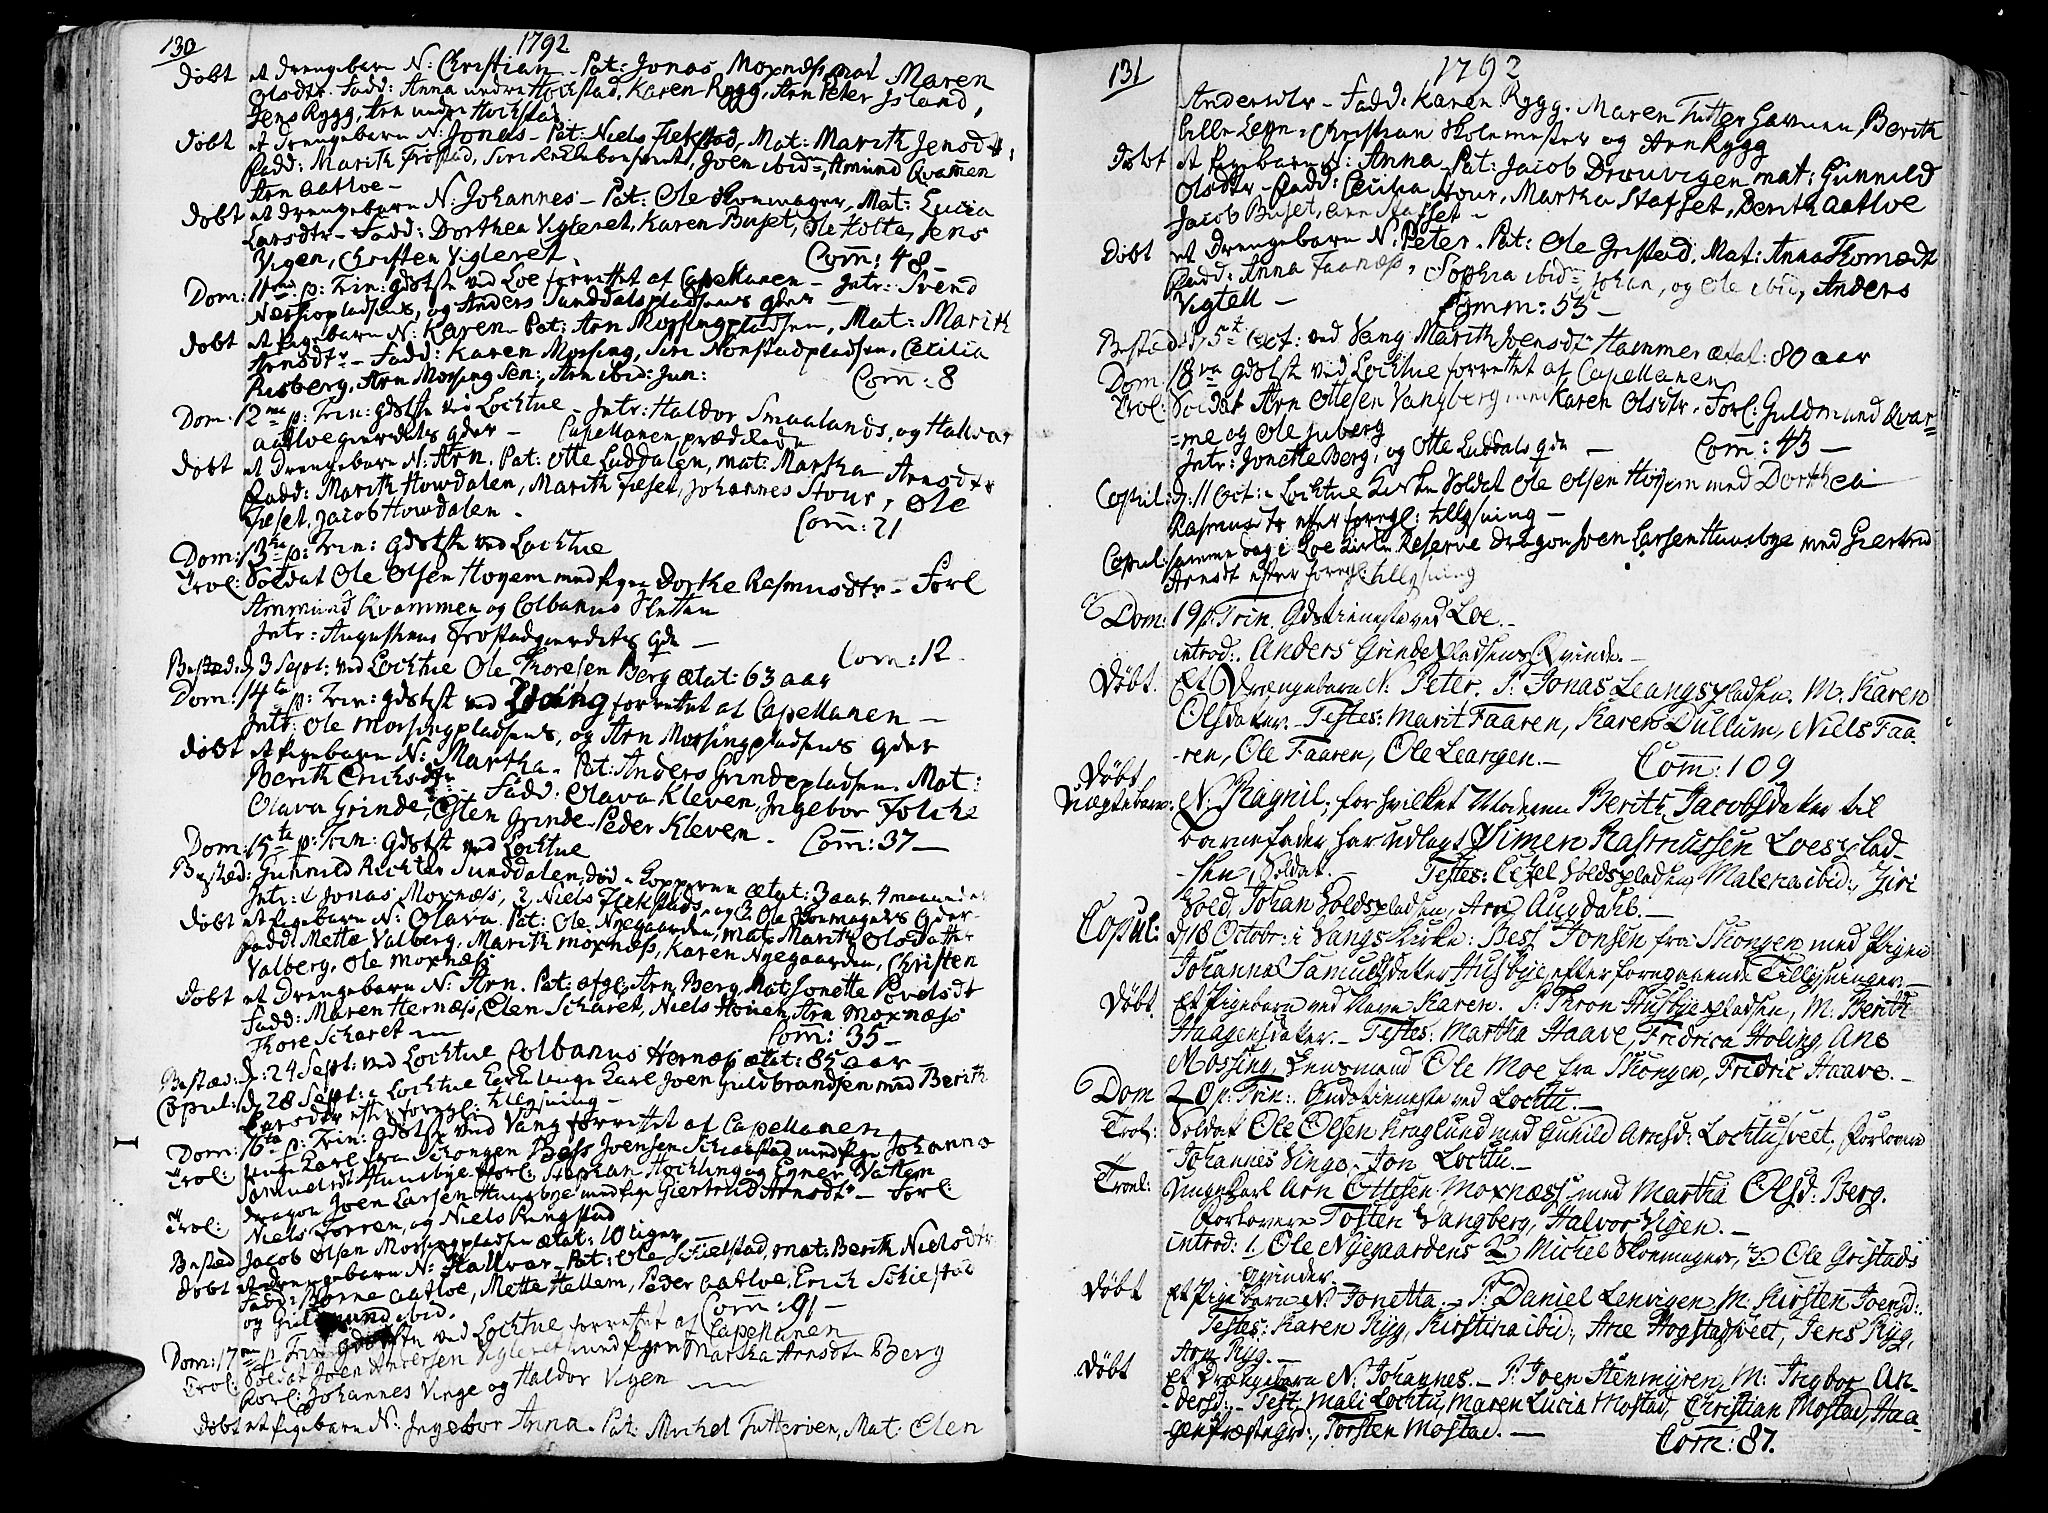 130
1792
døbt et drengebarn N: Christian - Pat: Jonas Moxness, mat Maren
Olsdtr. Fadd: Anna nedre Hockstad, Karen Rygg, Arn Peter Island,
Jens Rygg, Arn nedre Hockstad
døbt et drengebarn N: Jonas - Pat: Niels Fiekstad, Mat: Marith Jensdtr,
Fadd: Marith Frostad, Siri, Joen ibid, Amund Qvammen
Arn Aatloe -
døbt et drengebarn N: Johannes - Pat: Ole Skomager, Mat: Lucia
Larsdtr - Fadd: Dorthea Vigleret, Karen Buset, Ole Holte, Jens
Vigen, Christen Vigleret. Com: 48 -
Dom: 11 p: Trin: gdstste ved Loe forrettet af Capellanen - Intr: Svend
Nessiopladsens, og Anders Sunddalspladsens qder -
døbt et Pigebarn N: Karen - Pat: Arn Mossingpladsen, Mat: Marith
Arnsdtr - Fadd: Karen Mossing, Siri Nonstadpladsen, Cecilia
Risberg, Arn Mossing Sen:, Arn ibid: Jun: Com: 8
Dom: 12 p: Trin: gdstste ved Lochtue - Intr: Haldor Smaalands, og Halvor
Aatloegierdets qder - Capellanen prædikede
døbt et drengebarn N: Arn. Pat: Otte Luddalen, mat: Martha Arnsdtr
Fadd: Marith Howdalen, Marith Fieset, Johannes Stour, Ole
Fieset, Jacob Howdalen. Com: 21
Dom: 13 p: Trin: gdstste ved Lochtue
Trol: Soldat Ole Olsen Hoyem med pigen Dorthe Rasmusdtr - Forl
Ammund Kvammen og Colbanus Sletten
Intr: Augustinus Frostadgierdets qde -
Bestæd: d 3 Sept: ved Lochtue Ole Thoresen Berg ætat: 63 aar Com: 12
Dom: 14 p: Trin: gdstst ved Vang forrettet af Capellanen -
Intr: Ole Mossingpladsens, og Arn Mossingpladsens qder
døbt et Pigebarn N: Martha - Pat: Anders Grindepladsen. Mat:
Berith Ericksdtr - Fadd: Olava Kleven, Ingebor Folche
Olava Grinde, Esten Grinde, Peder Kleven - Com: 37 -
Dom: 15 p: Trin: gdstst ved Lochtue
Bested: Gunnild Sunddalen, død i Kopperne ætat: 3 aar 4 maaneder
Intr: 1 Jonas Moxness, 2, Niels Fiekstads, og 3 Ole Skomagers qder -
døbt et Pigebarn N: Olava. Pat: Ole Nyegaarden, mat: Marith Olsdatter
Fadd: Mette Valberg, Marith Moxness, Karen Nyegaarden, Christen
Valberg, Ole Moxness
døbt et Drengebarn N: Arn. Pat: afg: Arn Berg Mat: Jonette Povelsdt
Fadd: Maren Herness, Elen Scharet, Niels Hoven, Arn Moxness
Thore Scharet - Com: 35 -
Bestæd: d: 24 Sept: ved Lochtue Colbanus Herness ætat: 85 aar
Copul: d 28 Sept: i Lochtue Kirke Unge Karl Joen Guldbrandsen med Berith
Larsdtr efter foregl: tillysning -
Dom: 16 p: Trin: gdstste ved Vang forrettet af Capellanen
Trol: Unge Karl fra Skongen Bess Joensen med Pige Johanna
Samuelsdt Huusbye, Forl: Stephan Hockling og Egner Vattem
Trol: dragon Joen Larsen Huusbye med Pige Giertrud Arnsdtr - Forl:
Niels Forren, og Niels Ringstad
Bested Jacob Olsen Mossingpladsen ætat: 10 uger
døbt et drengebarn N: Hallvor - Pat: Ole Fielstad, mat: Berith Nielsdtr
Fadd: Aatloe, Mette Hallem, Peder Aatloe, Erich Schiestad
og ibid. Com: 91 -
Dom: 17 p Trin gdstste ved Lochtue forrettet af Capellanen
Trol: Soldat Joen Andersen Vigleret med Pigen Martha Arnsdtr Berg
Forl: Johannes Vinge og Haldor Vigen -
døbt et Pigebarn N: Ingebor Anna - Pat: Michel Tutterøen, Mat: Elen
131
1792
Andersdtr - Fadd: Karen Rygg, Maren Tutter havnen, Berith
Lille Leyn, Christian Skolemester og Arn Rygg
Døbt et Pigebarn N: Anna - Pat: Jacob Drouvigen mat: Gunnild
Olsdtr - Fadd: Cecilia Stour, Martha Stafset, Berith Aatloe
Jacob Buset, Arn Stafset -
døbt et Drengebarn N: Peter - Pat: Ole Gristad, Mat: Anna Thomædt
Fadd: Anna Faanæs, Sophia ibid, Johan, og Ole ibid, Anders
Vigtell - Comm: 55 -
Bestæd: d 5t Oct: ved Vang Marith Joensdtr Hammer ætat: 80 aar
Dom: 18 gdstst ved Lochtue forrettet af Capellanen
Trol: Soldat Arn Ottesen Vangberg med Karen Olsdtr. Forl: Guldmund Qvar=
=me og Ole Juberg
Intr: Jonette Berg, og Otte Luddals qde - Com: 43 -
Copul: d: 11 Oct: i Lochtue Kirke Soldat Ole Olsen Høyem med Dorthea
Rasmusdtr efter foregl: tillysning -
Copul: samme dag i Loe Kirke Reserve dragon Joen Larsen Huusbye med Giertrud
Arnsdt efter foregl: tillysning
Dom: 19 p: Trin. Gdstieneste ved Loe. -
introd:. Anders Grindepladsens Qvinde. -
Døbt. Et Drængebarn N: Peter. P: Jonas Leangspladsen. M: Karen
Olsdater. - Testes: Marit Faaren, Karen Dullum, Niels Faa-
-ren, Ole Faaren, Ole Leangen. - Com: 109
Døbt
Uægtebarn: N: Ragnil, for hvilket Moderen Berith Jacobsdater til
Barnefader har udlagt Simen Rasmussen Loespla-
-sen, Soldat. - Testes: Cezel Voldspladsen, Malena ibid:, Giri
Vold, Johan Voldspladsen, Arn Augdahl. -
Copul: d 18 Octobr: i Vangs Kirke: Bess Jonsen fra Skongen med Pigen
Johanna Samuelsdater Husbye, efter foregaaende Tillysninger. -
Døbt Et Pigebarn ved Navn Karen. P: Thron Husbyepladsen, M: Berith
Haagensdater. - Testes: Martha Haave, Fridrica Holing, Ane
Mossing, Lensmand Ole Moe fra Skongen, Fridric Haave. -
Dom 20 p: Trin: Gudstieneste ved Lochtu. -
Trol: Soldat Ole Olsen Kraglund med Gunild Arnsd: Lochtusveet, Forlovere
Johannes Vinge, Jon Lochtu. -
Trol: Ungkarl Arn Ottesen Moxnæss med Martha Olsd: Berg.
Forlovere Tosten Vangberg, Halvor Vigen. -
introd: 1. Ole Nyegaardens 2 Michel Skomagers, 3: Ole Gristads
Qvinder.
Døbt Et Pigebarn N: Jonetta. - P: Daniel Lenvigen, M: Kirsten Joensd:.
Testes: Karen Ryg, Kirstina ibid:, Ane Hogstadsveet, Jens Ryg,
Arn Ryg. -
Døbt Et Drængebarn N: Johannes. - P: Joen Stenmyren, M: Ingbor An-
-dersd:. - Test: Mali Lochtu, Maren Lucia Mostad, Christian Mostad, Haa-
gen Præstegrd:, Torsten Mostad. - Com: 87.